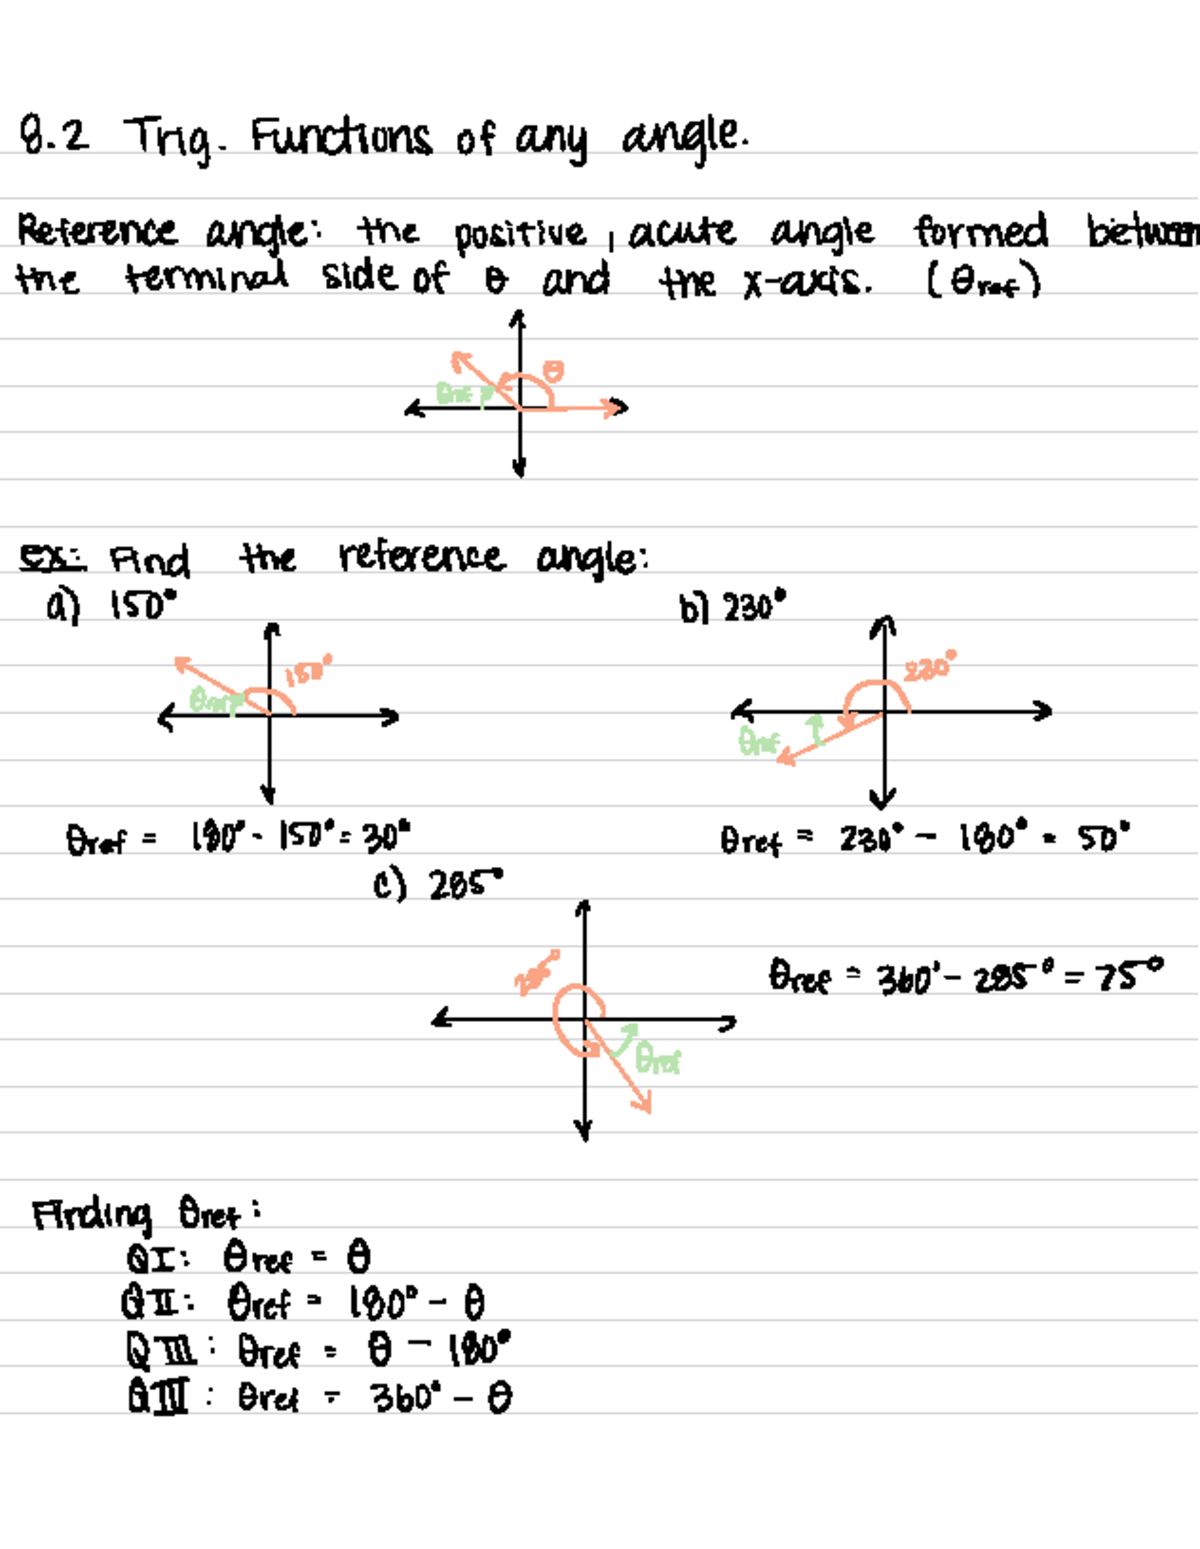 8.2 Trig. Functions of any angle.
Reference angle: the positive, acute angle formed between
the terminal side of θ and the x-axis. (θref)
θ
θref
ex: Find the reference angle:
a) 150° b) 230°
150° 230°
θref
θref
θref = 180° - 150° = 30° θref = 230° - 180° = 50°
c) 285°
285°
θref = 360° - 285° = 75°
θref
Finding θref:
QI: θref = θ
QII: θref = 180° - θ
QIII: θref = θ - 180°
QIV: θref = 360° - θ